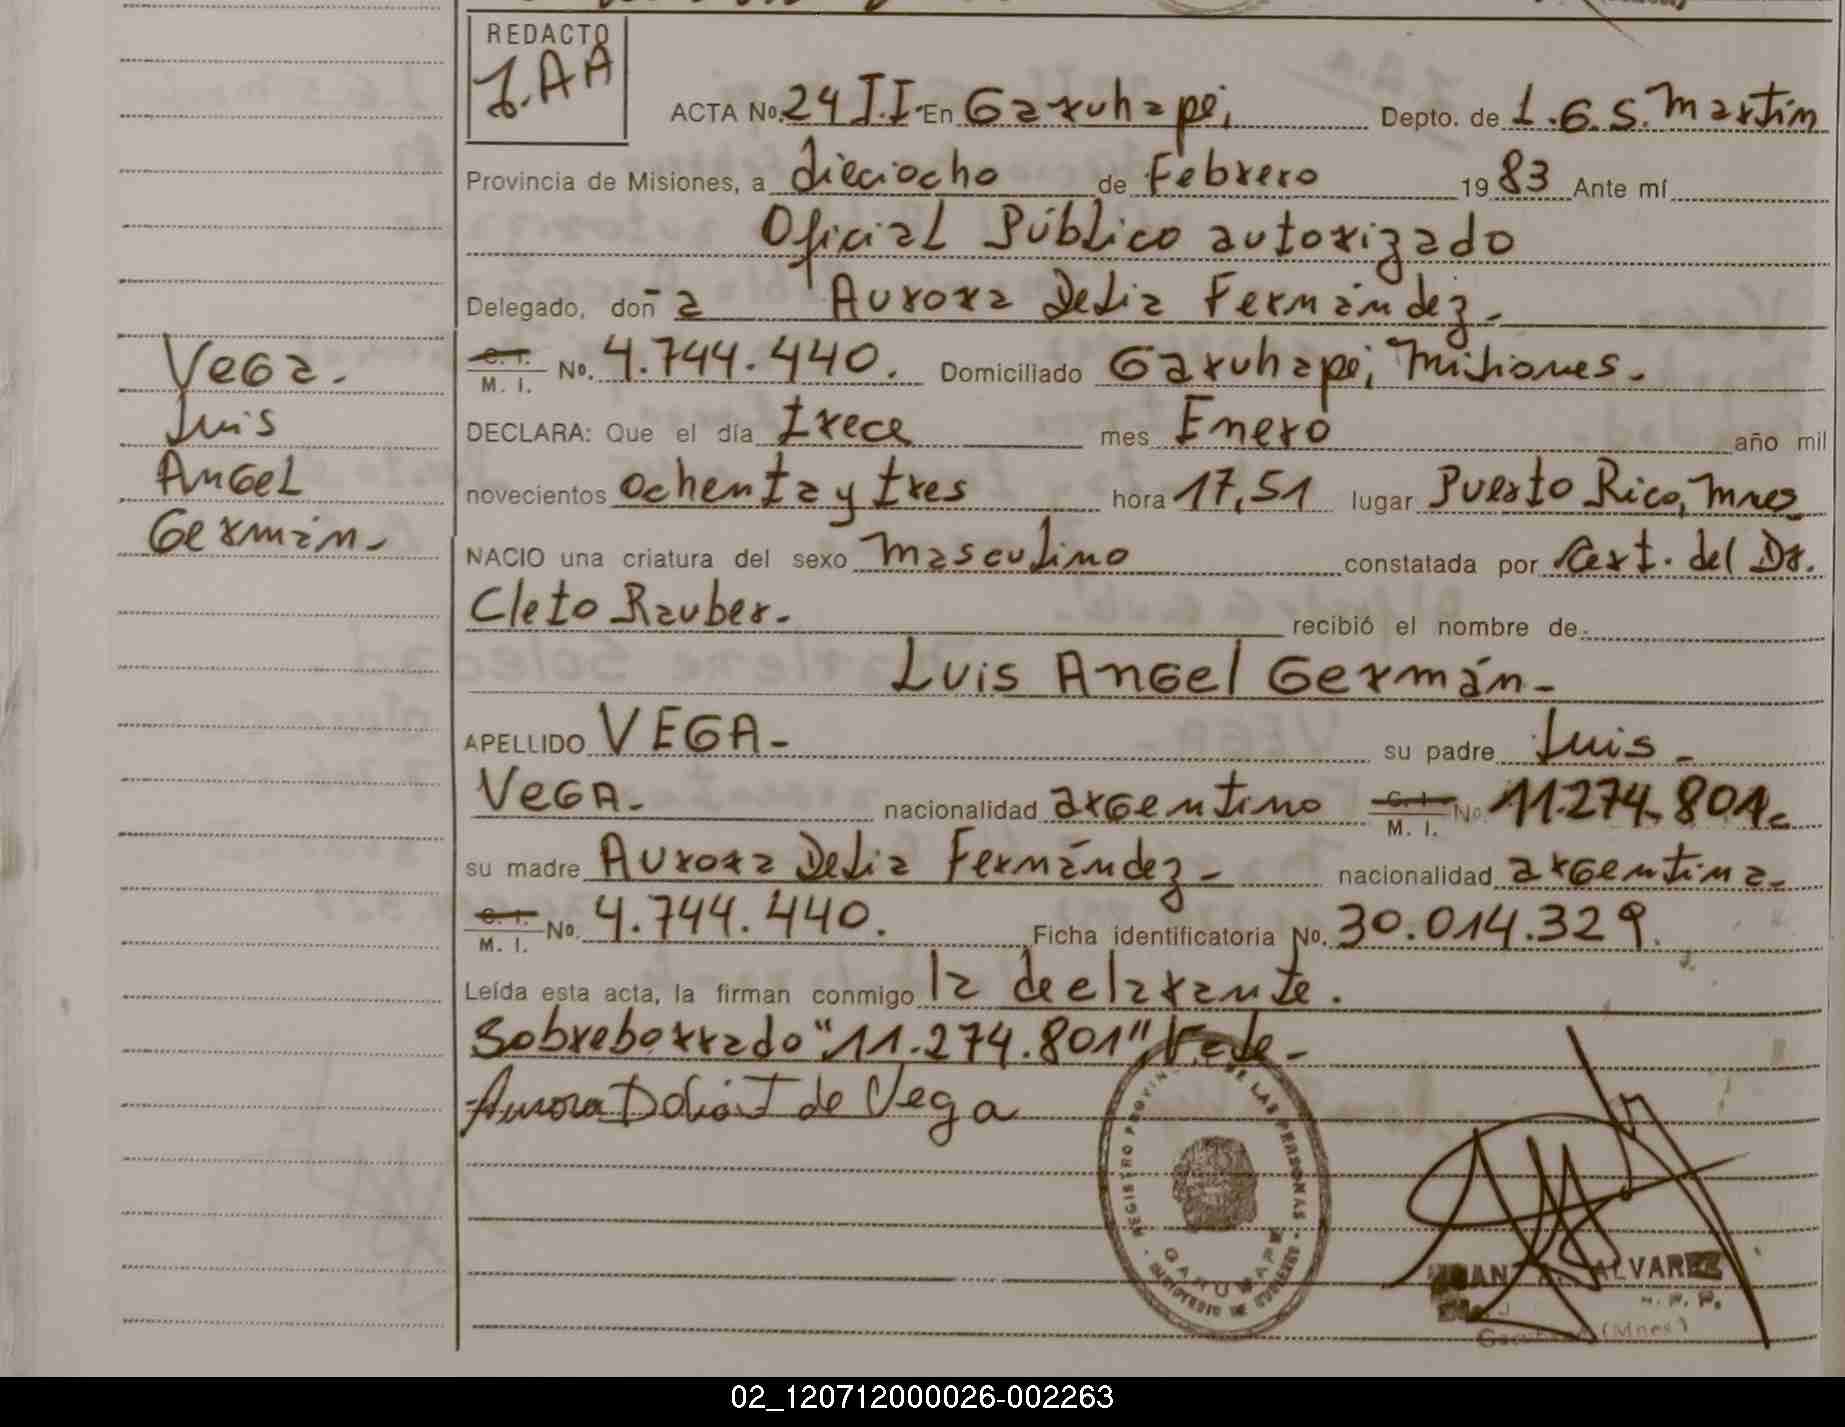 REDACTO
J.AA
ACTA No. 24 I.I. En Garuhapé, Depto. de L.G.S. Martín
Provincia de Misiones, a dieciocho de Febrero 1983 Ante mí
Oficial Público autorizado
Delegado, doña Aurora Delia Fernández.-
C. I. M. I. No. 4.744.440. Domiciliado Garuhapé, Misiones.-
Vega.-
DECLARA: Que el día trece mes Enero año mil
Luis
novecientos ochenta y tres hora 17,51 lugar Puerto Rico, Mnes
Angel
NACIO una criatura del sexo masculino constatada por Cert. del Dr.
Germán.-
Cleto Rauber.- recibió el nombre de
Luis Angel Germán.-
APELLIDO VEGA.- su padre Luis.-
VEGA.- nacionalidad argentino C. I. M. I. No. 11.274.801.
su madre Aurora Delia Fernández.- nacionalidad argentina.-
C. I. M. I. No. 4.744.440. Ficha identificatoria No. 30.014.329.
Leída esta acta, la firman conmigo la declarante.
Sobreborrado "11.274.801", Vale.-
Aurora D de Vega
REGISTRO PROVIN. DE LAS PERSONAS
GARUHAPE
ALVAREZ
(Mnes)
02_120712000026-002263